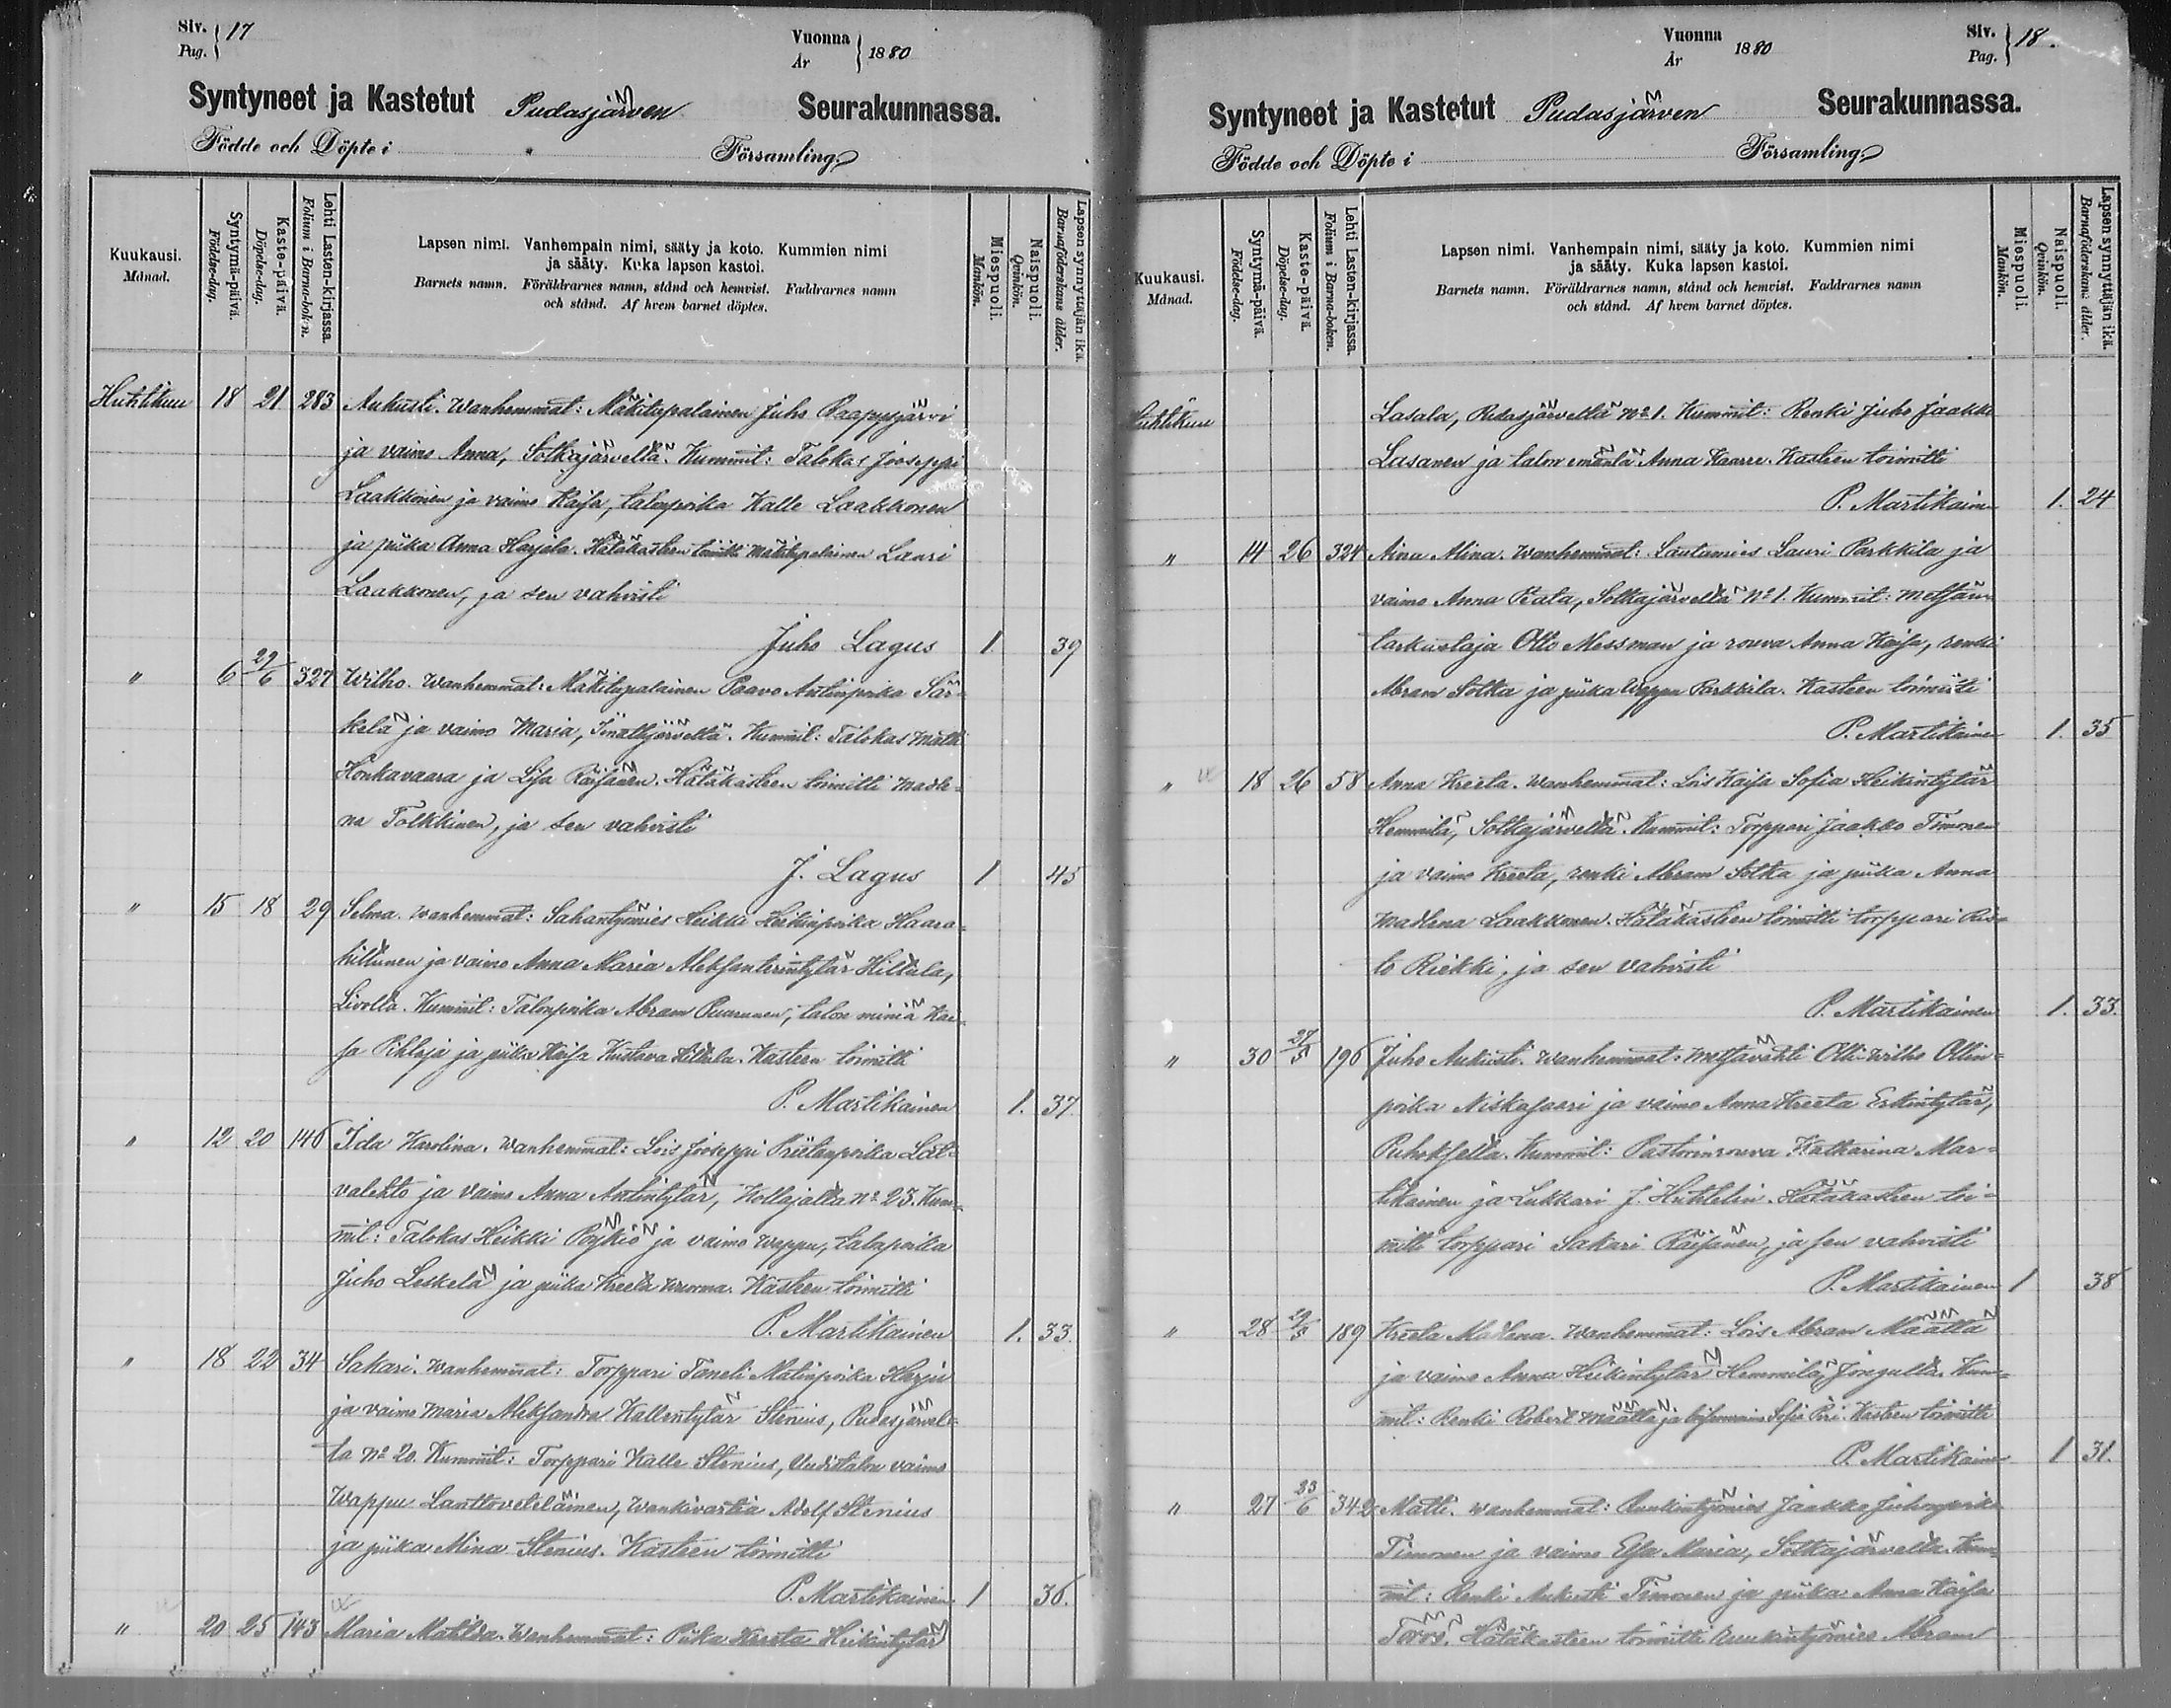 Siv. Pag. } 17
Vuonna År } 1880
Syntyneet ja Kastetut Pudasjärven Seurakunnassa.
Födde och Döpte i Församling.
Kuukausi. Månad.
Syntymä-päivä. Födelse-dag.
Kaste-päivä. Döpelse-dag.
Lehti Lasten-kirjassa. Folium i Barna-boken.
Lapsen nimi. Vanhempain nimi, sääty ja koto. Kummien nimi
ja sääty. Kuka lapsen kastoi.
Barnets namn. Föräldrarnes namn, stånd och hemvist. Faddrarnes namn
och stånd. Af hvem barnet döptes.
Miespuoli. Mankön.
Naispuoli. Qvinkön.
Lapsen synnyttäjän ikä. Barnaföderskans ålder.
Huhtikuu 18 21 283 Aukusti. Wanhemmat: Mäkitupalainen Juho Raappysjärvi
ja vaimo Anna, Sotkajärvellä. Kummit: Talokas Jooseppi
Laakkonen ja vaimo Kaisa, talonpoika Kalle Laakkonen
ja piika Anna Harjala. Hätäkasteen toimitti mäkitupalainen Lauri
Laakkonen, ja sen vahvisti
Juho Lagus 1 39
" 6 29/6 327 Wilho. Wanhemmat: Mäkitupalainen Paavo Antinpoika Sär-
kelä ja vaimo Maria, Iinattijärvellä. Kummit: Talokas Matti
Honkavaara ja Liisa Räisänen. Hätäkasteen toimitti Madle-
na Tolkkinen, ja sen vahvisti
J. Lagus 1 45
" 15 18 29 Selma. Wanhemmat: Sahantyömies Heikki Heikinpoika Haara-
hiltunen ja vaimo Anna Maria Aleksanterintytär Hiltula,
Livolla. Kummit: Talonpoika Abram Puurunen, talon miniä Kai-
sa Pihlaja ja piika Kaisa Kustava Hiltula. Kasteen toimitti
P. Martikainen 1. 37
" 12 20 146 Ida Karolina. Wanhemmat: Lois Jooseppi Priitanpoika Lat-
valehto ja vaimo Anna Antintytär, Kollajalla No 23. Kum-
mit: Talokas Heikki Pöykiö ja vaimo Wappu, talonpoika
Juho Leskelä ja piika Kreeta Wuorma. Kasteen toimitti
P. Martikainen 1. 33.
" 18 22 34 Sakari. Wanhemmat: Torppari Taneli Matinpoika Harju
ja vaimo Maria Aleksandra Kallentytär Stenius, Pudasjärvel-
lä No 20. Kummit: Torppari Kalle Stenius, Uudistalon vaimo
Wappu Lanttoveteläinen, Wankivartia Adolf Stenius
ja piika Mina Stenius. Kasteen toimitti
P. Martikainen 1 36.
" 20 25 143 Maria Matilda. Wanhemmat: Piika Kreeta Heikintytär
Vuonna År 1880
Siv. Pag. } 18.
Syntyneet ja Kastetut Pudasjärven Seurakunnassa.
Födde och Döpte i Församling.
Kuukausi. Månad.
Syntymä-päivä. Födelse-dag.
Kaste-päivä. Döpelse-dag.
Lehti Lasten-kirjassa. Folium i Barna-boken.
Lapsen nimi. Vanhempain nimi, sääty ja koto. Kummien nimi
ja sääty. Kuka lapsen kastoi.
Barnets namn. Föräldrarnes namn, stånd och hemvist. Faddrarnes namn
och stånd. Af hvem barnet döptes.
Miespuoli. Mankön.
Naispuoli. Qvinkön.
Lapsen synnyttäjän ikä. Barnaföderskans ålder.
Huhtikuu Lasala, Pudasjärvellä No 1. Kummit: Renki Juho Jaakko
Lasanen ja talon emäntä Anna Kaarre. Kasteen toimitti
P. Martikainen 1. 24
" 14 26 324 Aina Alina. Wanhemmat: Lautamies Lauri Parkkila ja
vaimo Anna Rata, Sotkajärvellä No 1. Kummit: metsän-
tarkastaja Otto Messman ja rouva Anna Kaisa, renki
Abram Sotka ja piika Wappu Parkkila. Kasteen toimitti
P. Martikainen 1. 35
" 18 26 58 Anna Kreeta. Wanhemmat: Lois Kaisa Sofia Heikintytär
Hemmilä, Sotkajärvellä. Kummit: Torppari Jaakko Timonen
ja vaimo Kreeta, renki Abram Sotka ja piika Anna
Madlena Laakkonen. Hätäkasteen toimitti torppari Ris-
to Riekki, ja sen vahvisti
P. Martikainen 1. 33.
" 30 27/5 196 Juho Aukusti. Wanhemmat: Metsävahti Olli Wilho Ollin-
poika Niskasaari ja vaimo Anna Kreeta Erkintytär,
Puhoksella. Kummit: Pastorinrouva Katharina Mar-
tikainen ja Lukkari J. Huhtelin. Hätäkasteen toi-
mitti torppari Sakari Räisänen, ja sen vahvisti
P. Martikainen 1 38
" 28 29/5 189 Kreeta Madlena. Wanhemmat: Lois Abram Määttä
ja vaimo Anna Heikintytär Hemmilä, Jongulla. Kum-
mit: Renki Robert Määttä ja Sofia Piri. Kasteen toimitti
P. Martikainen 1 31.
" 27 23/6 342 Matti. Wanhemmat: Ruukintyömies Jaakko Juhonpoika
Timonen ja vaimo Elsa Maria, Sotkajärvellä. Kum-
mit: Renki Aukusti Timonen ja piika Anna Kaisa
Törrö. Hätäkasteen toimitti ruukintyömies Abram